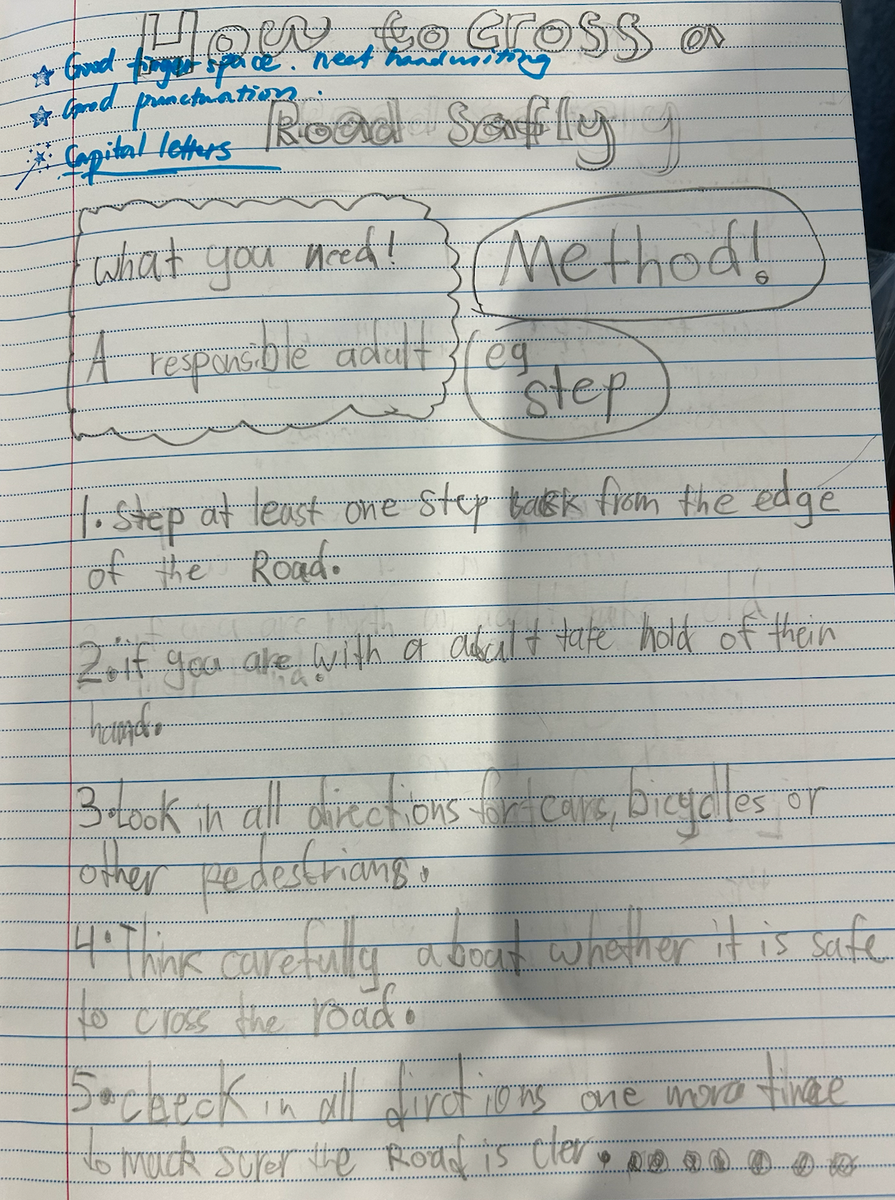 How to cross a
★ Good finger space. neat handwriting
★ Good punctuation.
Road Safly
Capital letters
what you need!
A responsible adult
Method!
eg
step
1. Step at least one step back from the edge
of the Road.
2. if you are with a adult take hold of their
hand.
3. Look in all directions for cars, bicyclles or
other pedestrians.
4. Think carefully about whether it is safe
to cross the road.
5. check in all dirctions one more time
to muck surer the Road is cler.